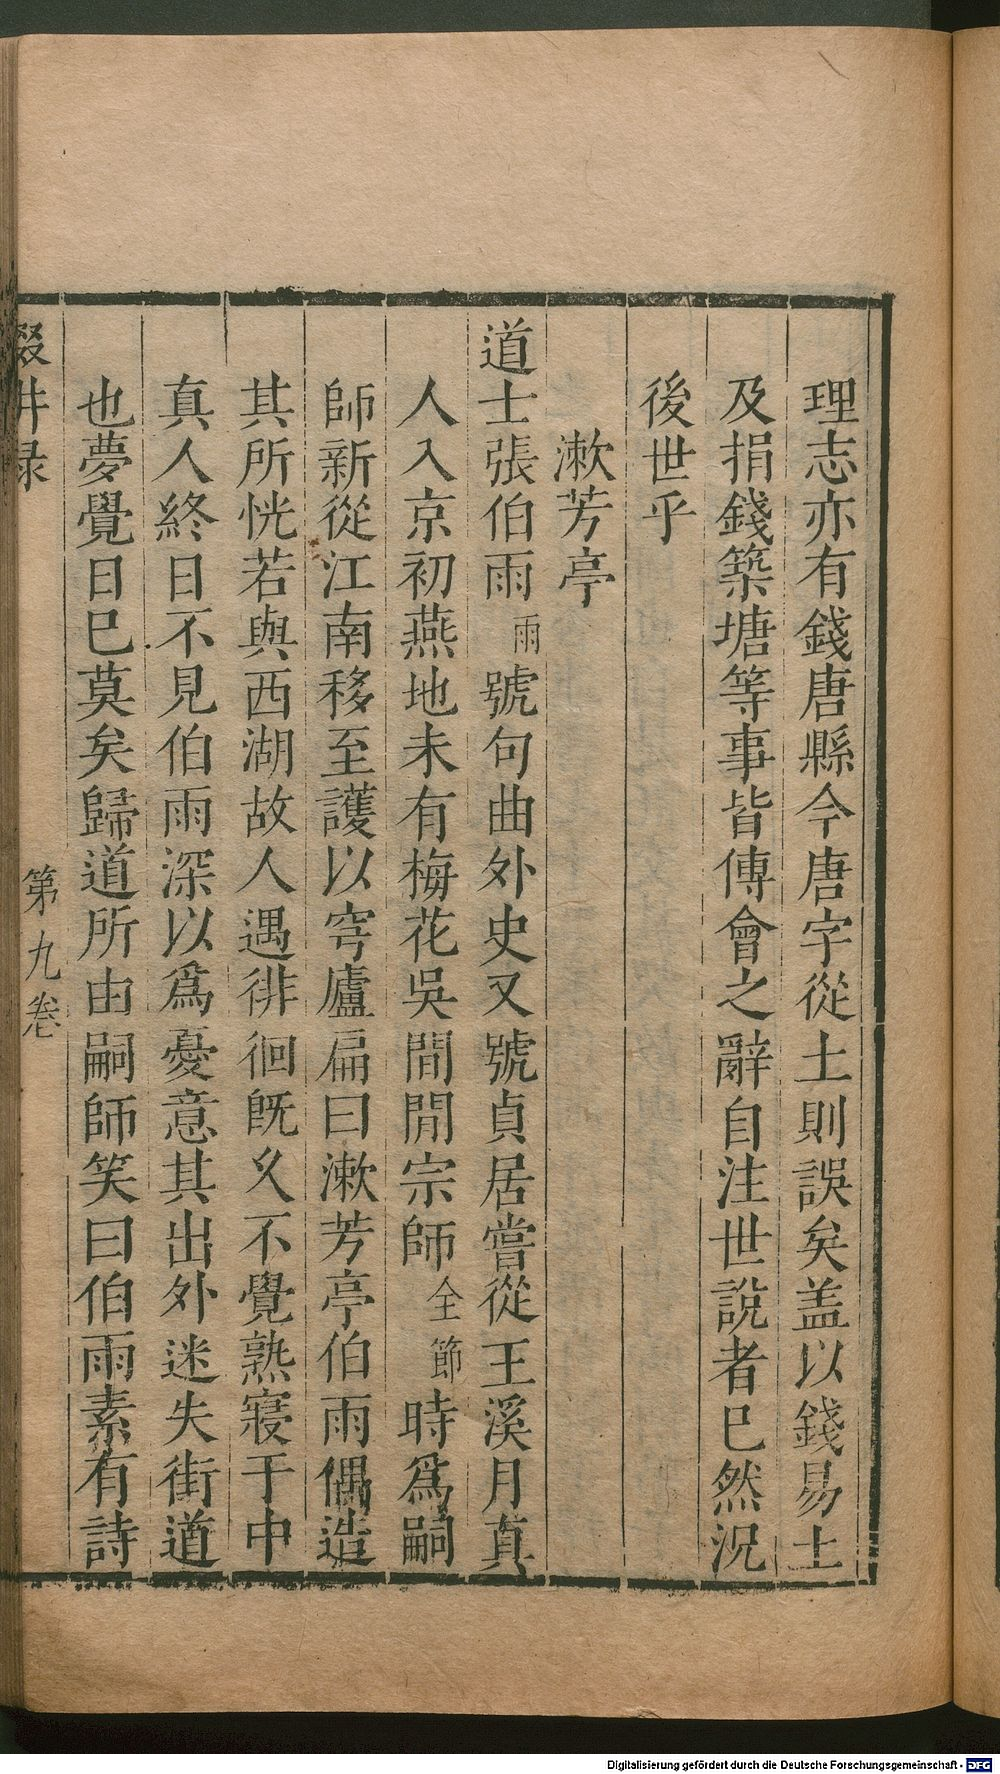 理志亦有錢唐縣今唐字從土則誤矣盖以錢易土
及捐錢築塘等事皆傳會之辭自注世說者已然況
後世乎
漱芳亭
道士張伯雨雨號句曲外史又號貞居嘗從王溪月真
人入京初燕地未有梅花吳間閒宗師全節時爲嗣
師新從江南移至護以穹廬扁曰漱芳亭伯雨偶造
其所恍若與西湖故人遇徘徊旣久不覺熟寢于中
真人終日不見伯雨深以爲憂意其出外迷失街道
也夢覺日已莫矣歸道所由嗣師笑曰伯雨素有詩
第九卷
Digitalisierung gefördert durch die Deutsche Forschungsgemeinschaft - DFG